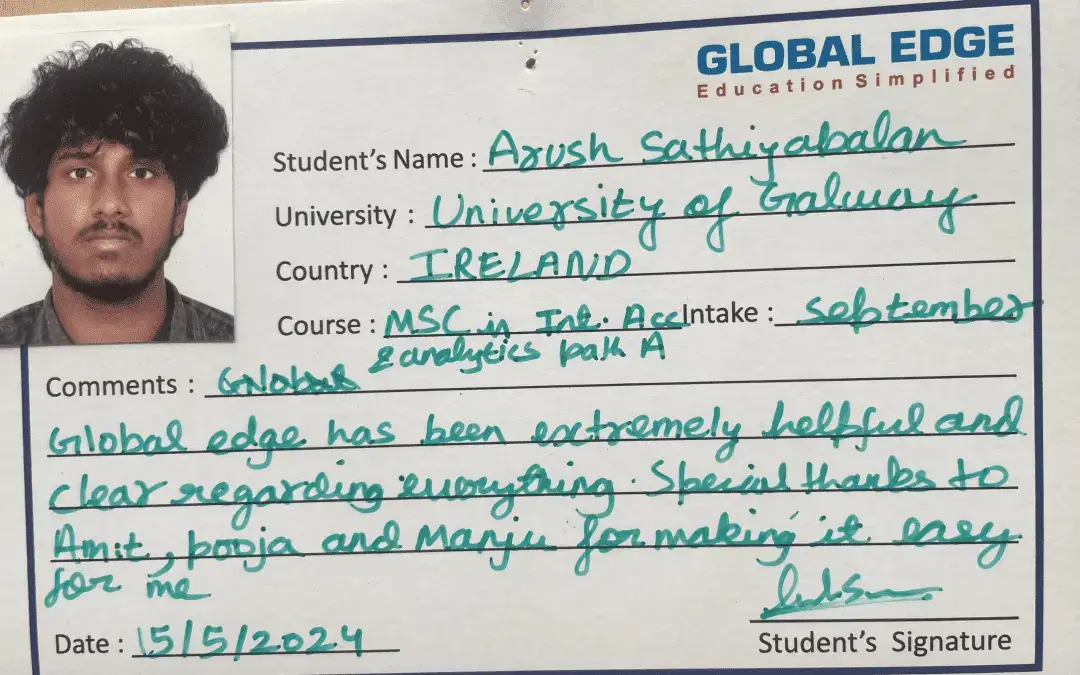 GLOBAL EDGE
Education Simplified
Student's Name : Arush Sathiyabalan
University : University of Galway
Country : IRELAND
Course : MSC in Int. Acc Intake : september
& analytics path A
Comments :
Global edge has been extremely helpful and
clear regarding everything. Special thanks to
Amit, pooja and Manju for making it easy
for me
Date : 15/5/2024
Student's Signature